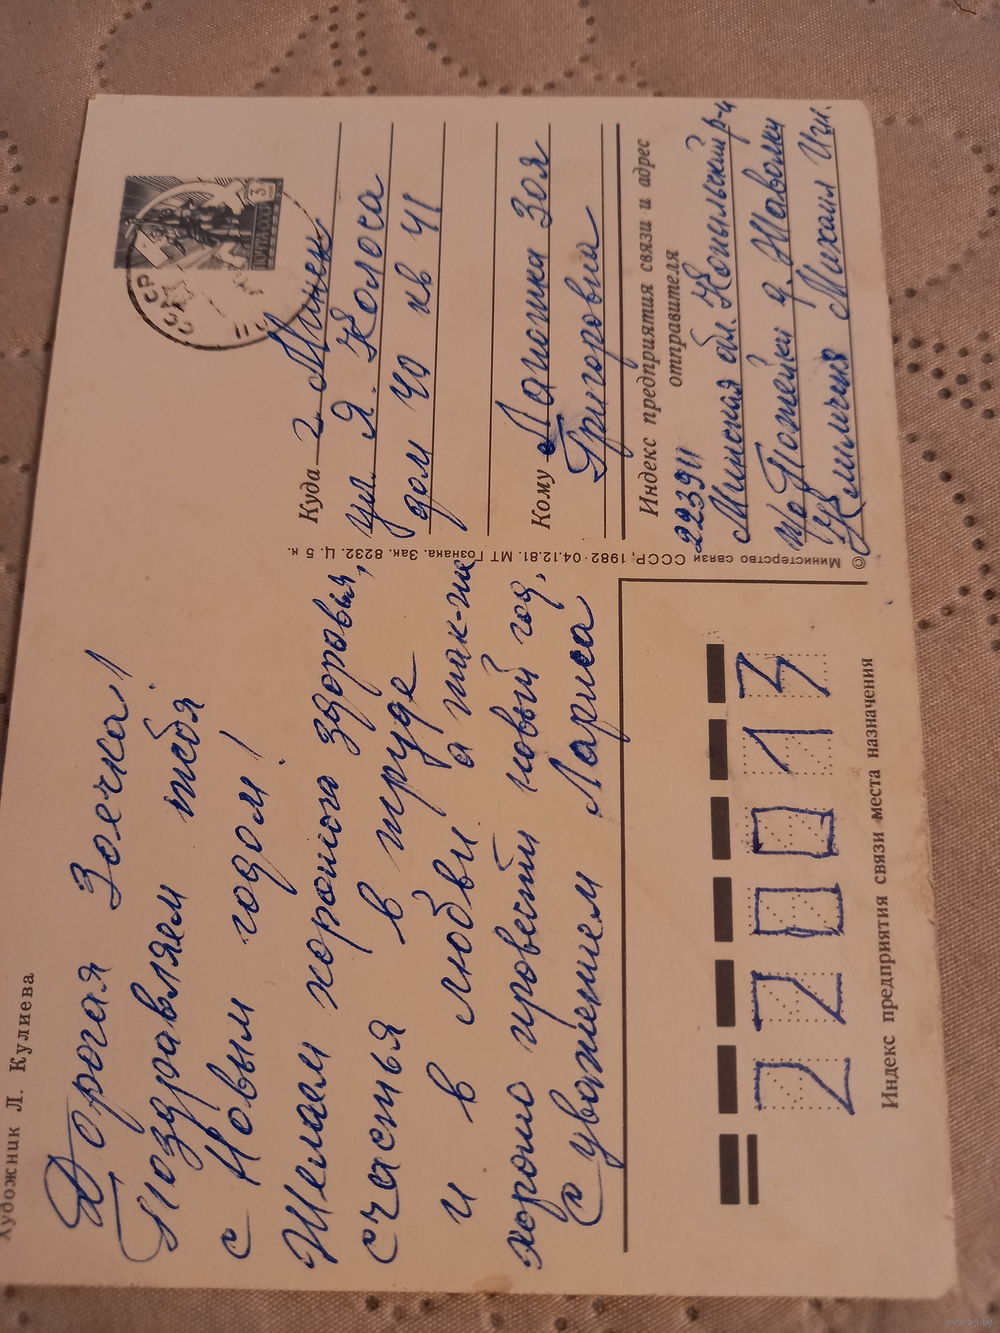 Художник Л. Кулиева
Дорогая Зоечка!
Поздравляем тебя
с Новым годом!
Желаем хорошого здоровья,
счастья в труде
и в любви а так-же
хорошо провести новый год.
С уважением Лариса
© Министерство связи СССР, 1982·04.12.81. МТ Гознака. Зак. 8232. Ц. 5 к.
СССР
Куда г. Минск
ул. Я. Коласа
дом 40 кв 41
Кому
Зоя
Григоровна
Индекс предприятия связи и адрес
отправителя
223911
Минская обл. Копыльский р-н
п/о д.
Михаил
220013
Индекс предприятия связи места назначения
www.ay.by